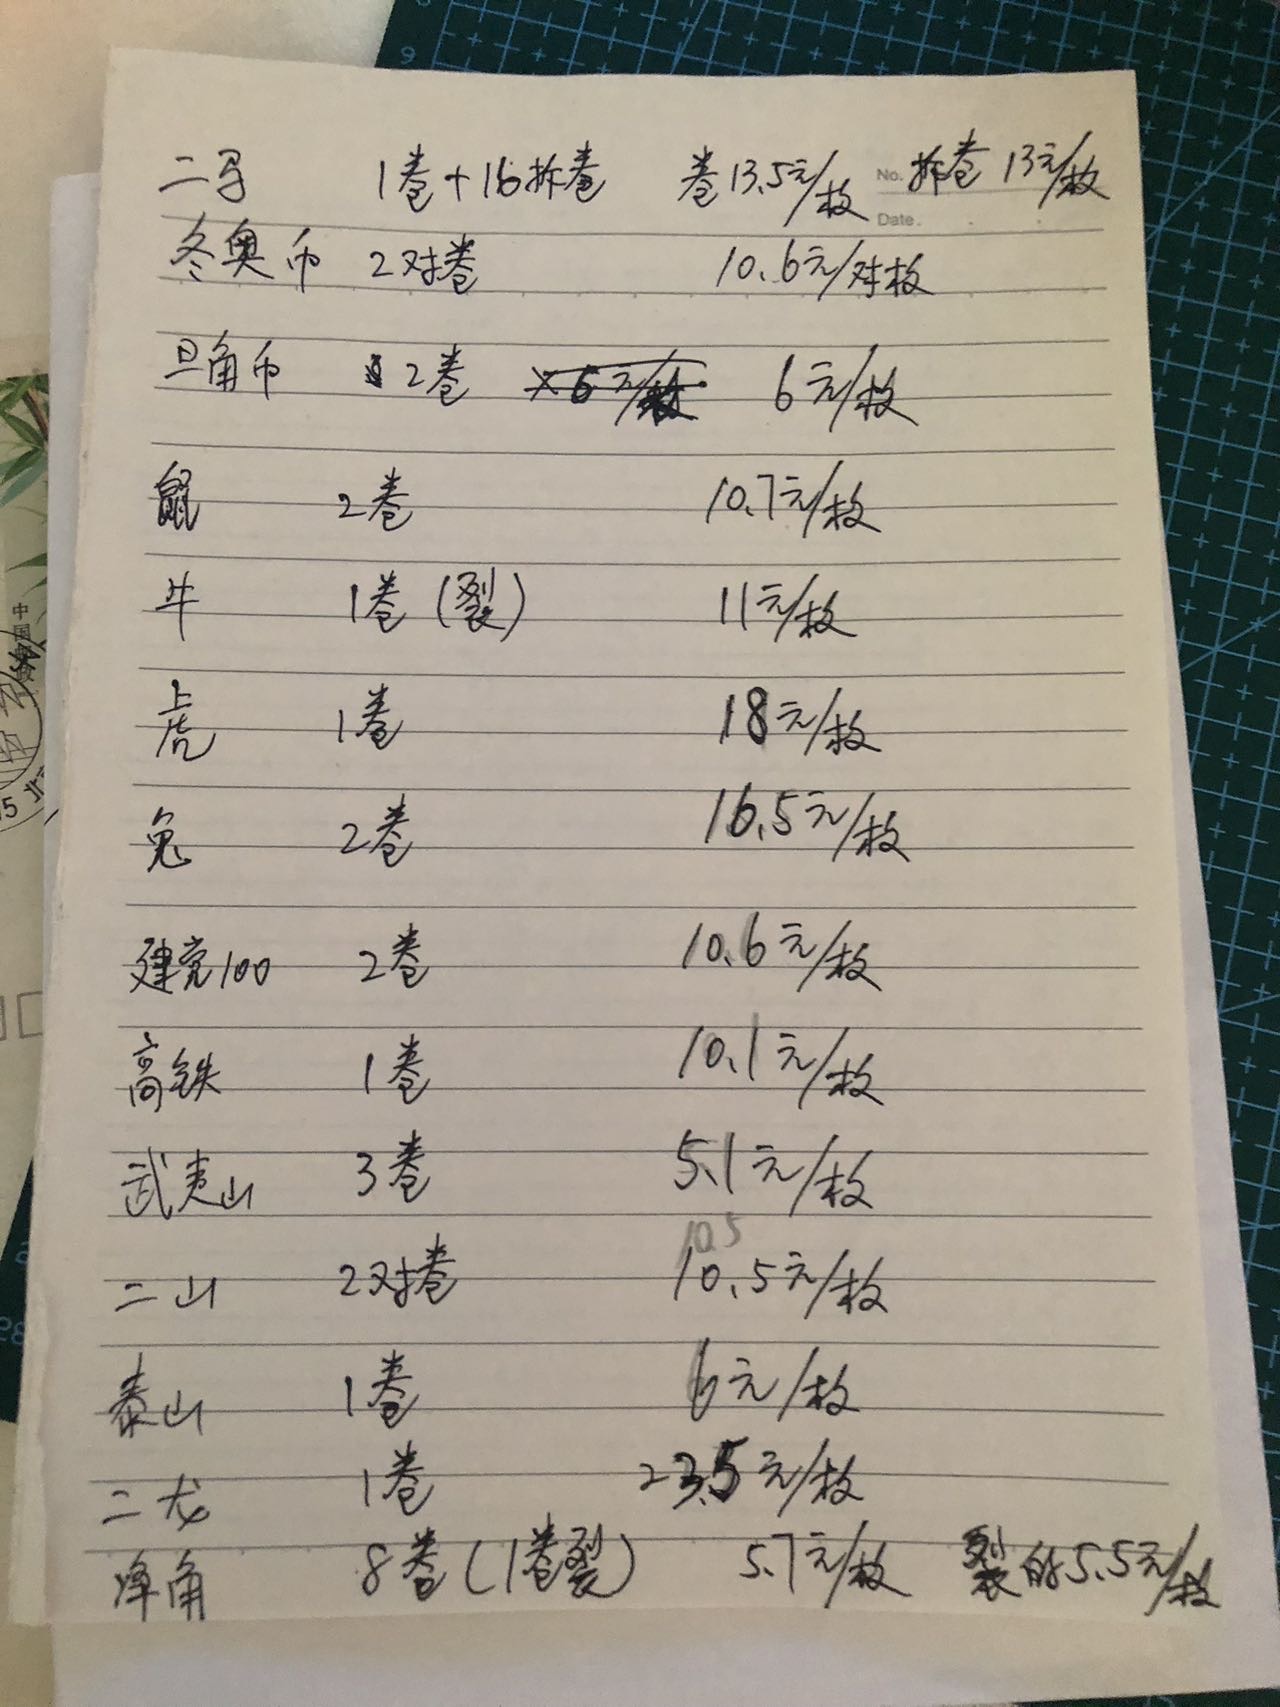 No.
Date.
二马 1卷+16拆卷 卷13.5元/枚 拆卷 13元/枚
冬奥币 2对卷 10.6元/对枚
旦角币 2卷 6元/枚
鼠 2卷 10.7元/枚
牛 1卷(裂) 11元/枚
虎 1卷 18元/枚
兔 2卷 16.5元/枚
建党100 2卷 10.6元/枚
高铁 1卷 10.1元/枚
武夷山 3卷 5.1元/枚
10.5
二山 2对卷 10.5元/枚
泰山 1卷 6元/枚
二龙 1卷 23.5元/枚
净角 8卷(1卷裂) 5.7元/枚 裂的5.5元/枚
中国